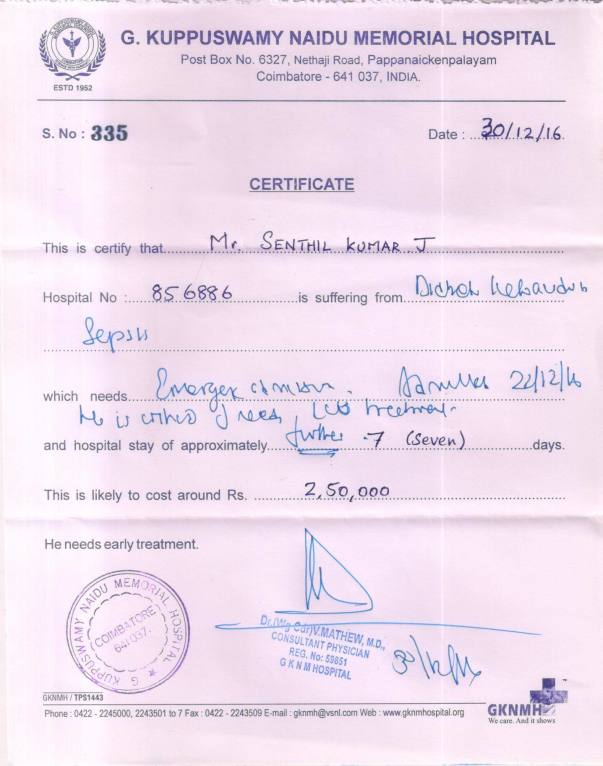 G. KUPPUSWAMY NAIDU MEMORIAL HOSPITAL
Post Box No. 6327, Nethaji Road, Pappanaickenpalayam
Coimbatore - 641 037, INDIA.
ESTD 1952
S. No : 335
Date : 30/12/16
CERTIFICATE
This is certify that Mr. SENTHIL KUMAR J
Hospital No : 856886 is suffering from
Sepsis
which needs 22/12/16
He is needs treatment.
and hospital stay of approximately further 7 (Seven) days.
This is likely to cost around Rs. 2,50,000
He needs early treatment.
G. KUPPUSWAMY NAIDU MEMORIAL HOSPITAL
COIMBATORE
641 037.
Dr.(Wg Cdr)V.MATHEW, M.D.,
CONSULTANT PHYSICIAN
REG. No: 59851
G K N M HOSPITAL
GKNMH / TPS1443
Phone : 0422 - 2245000, 2243501 to 7 Fax : 0422 - 2243509 E-mail : gknmh@vsnl.com Web : www.gknmhospital.org
GKNMH
We care. And it shows